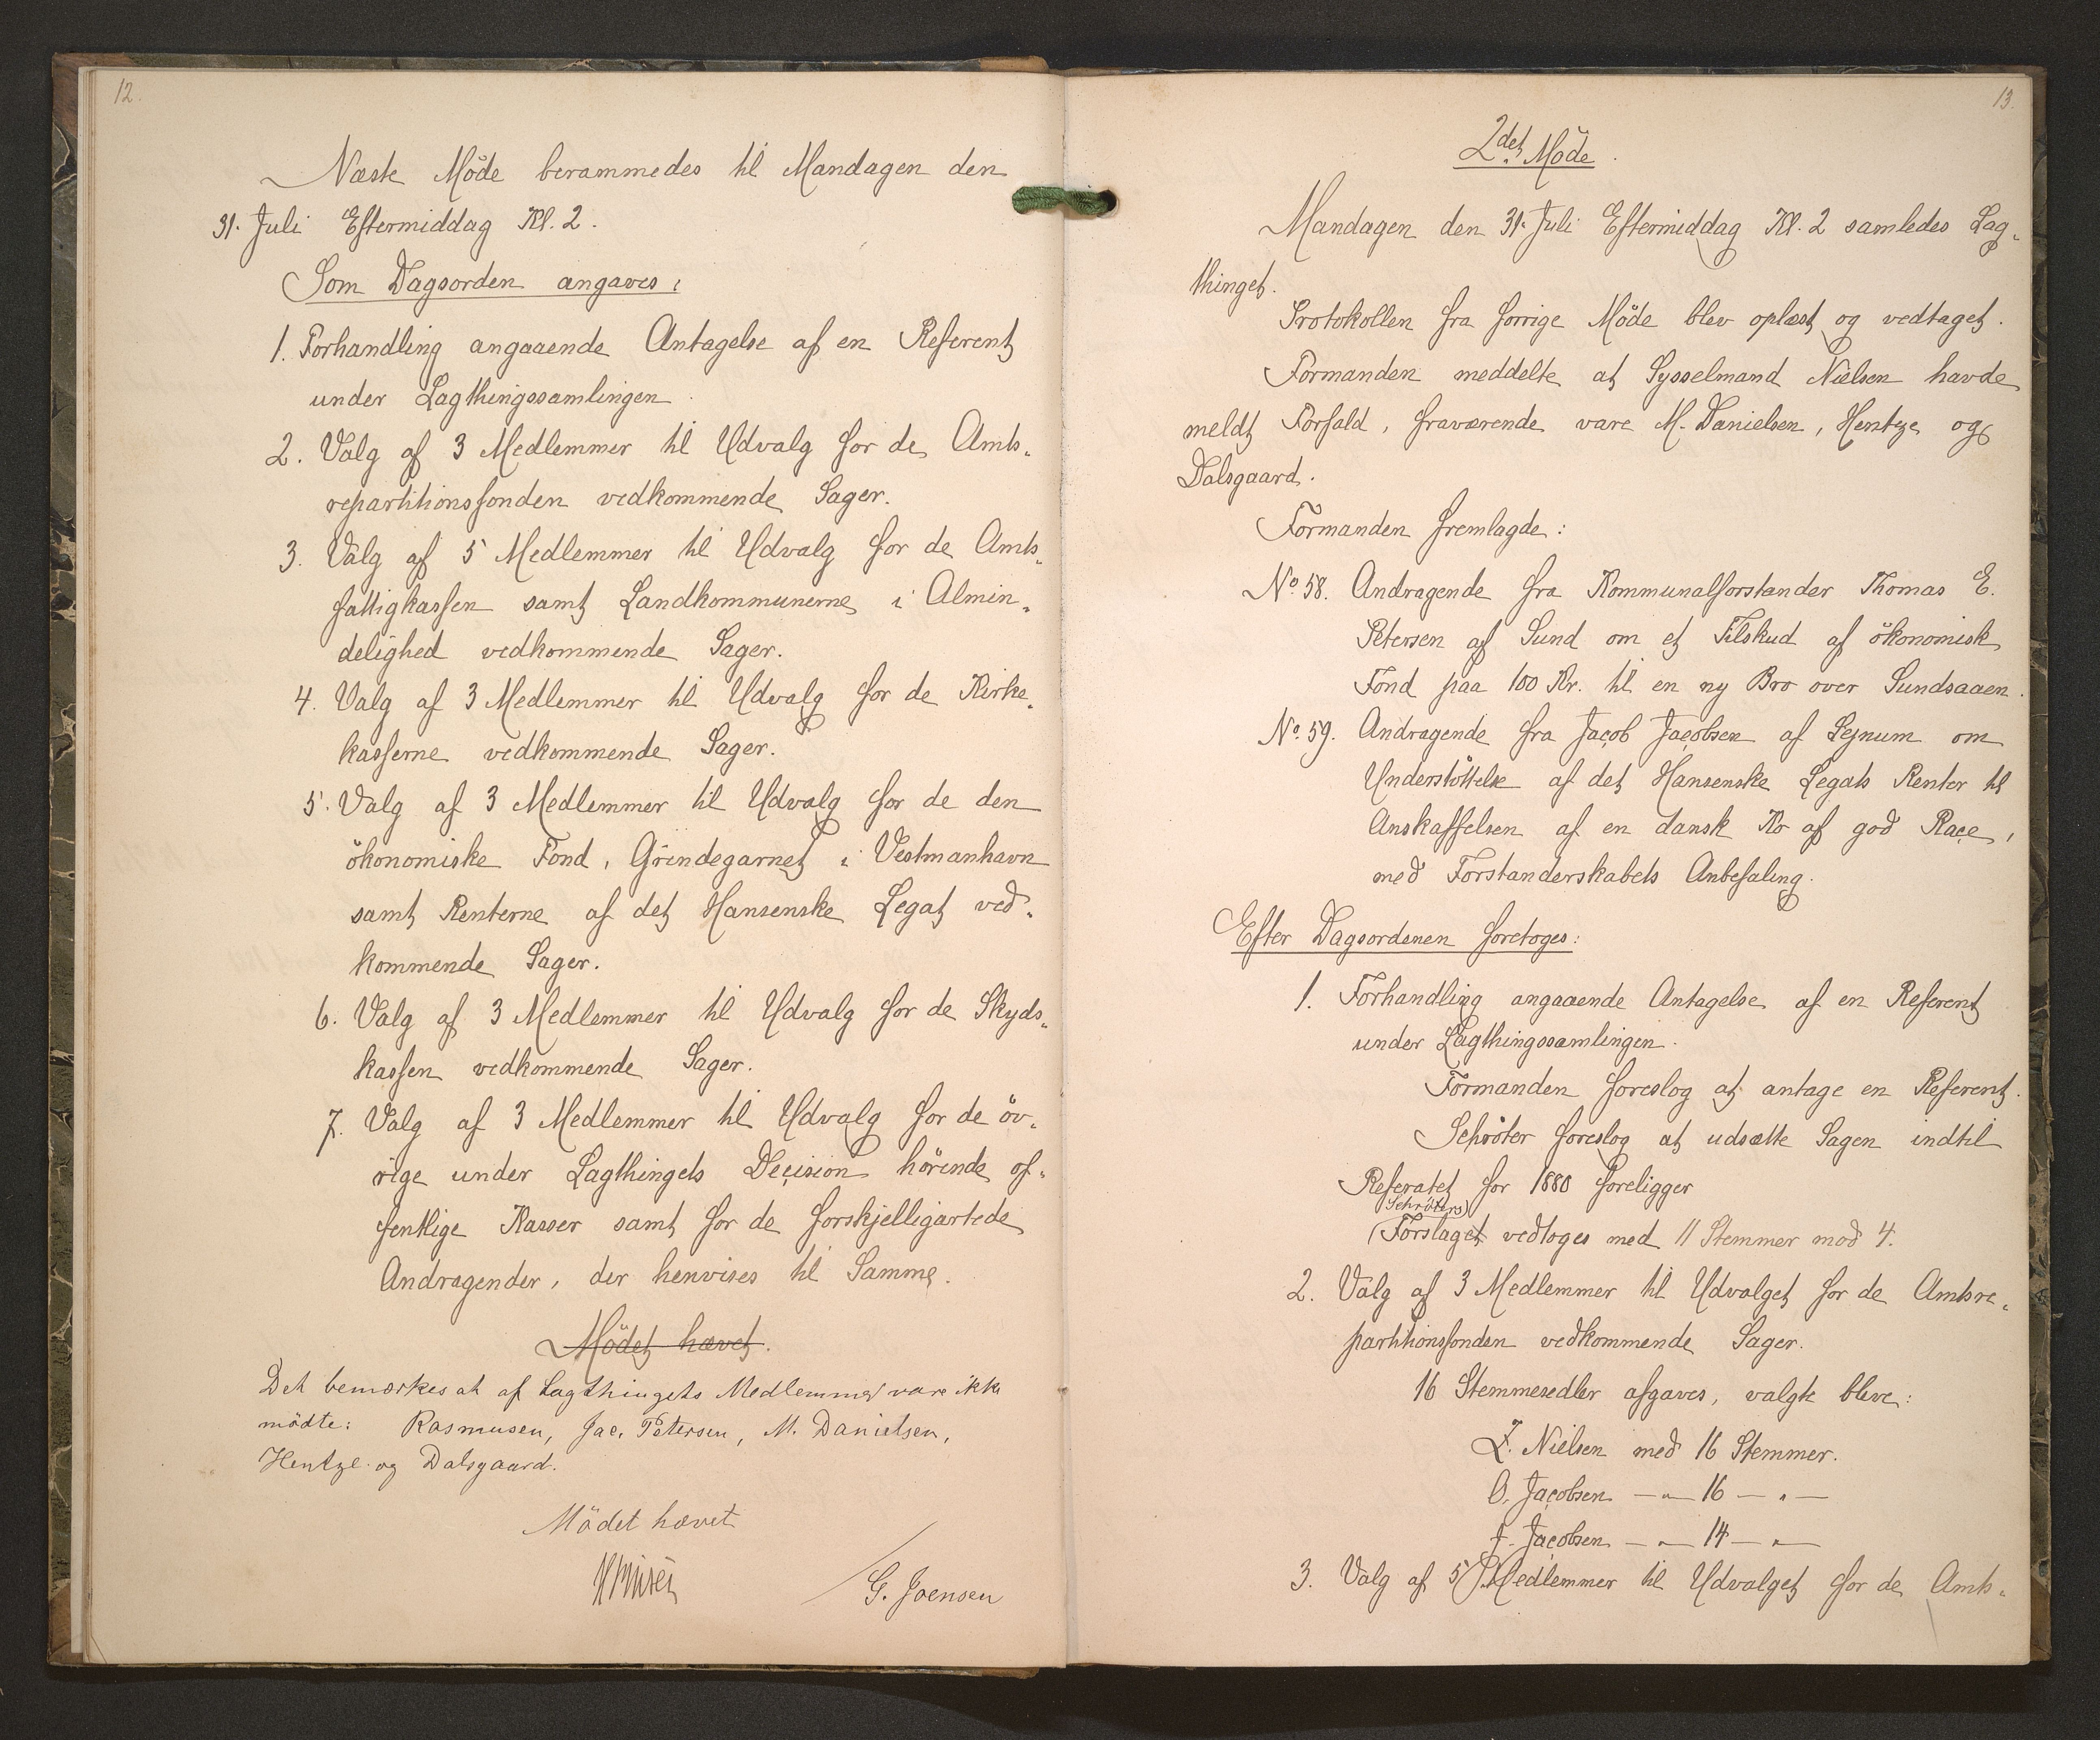 12.
Næste Möde berammedes til Mandagen den
31. Juli Eftermiddag Kl. 2.
Som Dagsorden angaves:
1. Forhandling angaaende Antagelse af en Referent
under Lagthingssamlingen.
2. Valg af 3 Medlemmer til Udvalg for de Amts-
repartitionsfonden vedkommende Sager.
3. Valg af 5 Medlemmer til Udvalg for de Amts-
fattigkassen samt Landkommunerne i Almin-
delighed vedkommende Sager.
4. Valg af 3 Medlemmer til Udvalg for de Kirke-
kasserne vedkommende Sager.
5. Valg af 3 Medlemmer til Udvalg for de den
ökonomiske Fond, Grindegarnet i Vestmanhavn
samt Renterne af det Hansenske Legat ved-
kommende Sager.
6. Valg af 3 Medlemmer til Udvalg for de Skyds-
kassen vedkommende Sager.
7. Valg af 3 Medlemmer til Udvalg for de öv-
rige under Lagthingets Decision hörende of-
fentlige Kasser samt for de forskjelligartede
Andragender, der henvises til Samme.
Mödet hævet.
Det bemærkes at af Lagthingets Medlemmer vare ikke
mödte: Rasmusen, Jac. Petersen, M. Danielsen,
Hentze og Dalsgaard.
Mödet hævet
G. Joensen
13.
2det Möde.
Mandagen den 31. Juli Eftermiddag Kl. 2 samledes Lag-
thinget.
Protokollen fra forrige Möde blev oplæst og vedtaget.
Formanden meddelte at Sysselmand Nielsen havde
meldt Forfald, fraværende vare M. Danielsen, Hentze og
Dalsgaard.
Formanden fremlagde:
No. 58. Andragende fra Kommunalforstander Thomas E.
Petersen af Sund om et Tilskud af ökonomisk
Fond paa 100 Kr. til en ny Bro over Sundsaaen.
No. 59. Andragende fra Jacob Jacobsen af Lejnum om
Understöttelse af det Hansenske Legats Renter til
Anskaffelsen af en dansk Ko af god Race,
med Forstanderskabets Anbefaling.
Efter Dagsordenen foretoges:
1. Forhandling angaaende Antagelse af en Referent
under Lagthingssamlingen.
Formanden foreslog at antage en Referent.
Schröter foreslog at udsætte Sagen indtil
Referatet for 1880 foreligger
Schröters
Forslaget vedtoges med 11 Stemmer mod 4.
2. Valg af 3 Medlemmer til Udvalget for de Amtsre-
partitionsfonden vedkommende Sager.
16 Stemmesedler afgaves, valgte bleve:
Z. Nielsen med 16 Stemmer.
O. Jacobsen — " — 16 — " —
J. Jacobsen — " — 14 — " —
3. Valg af 5 Medlemmer til Udvalget for de Amts-